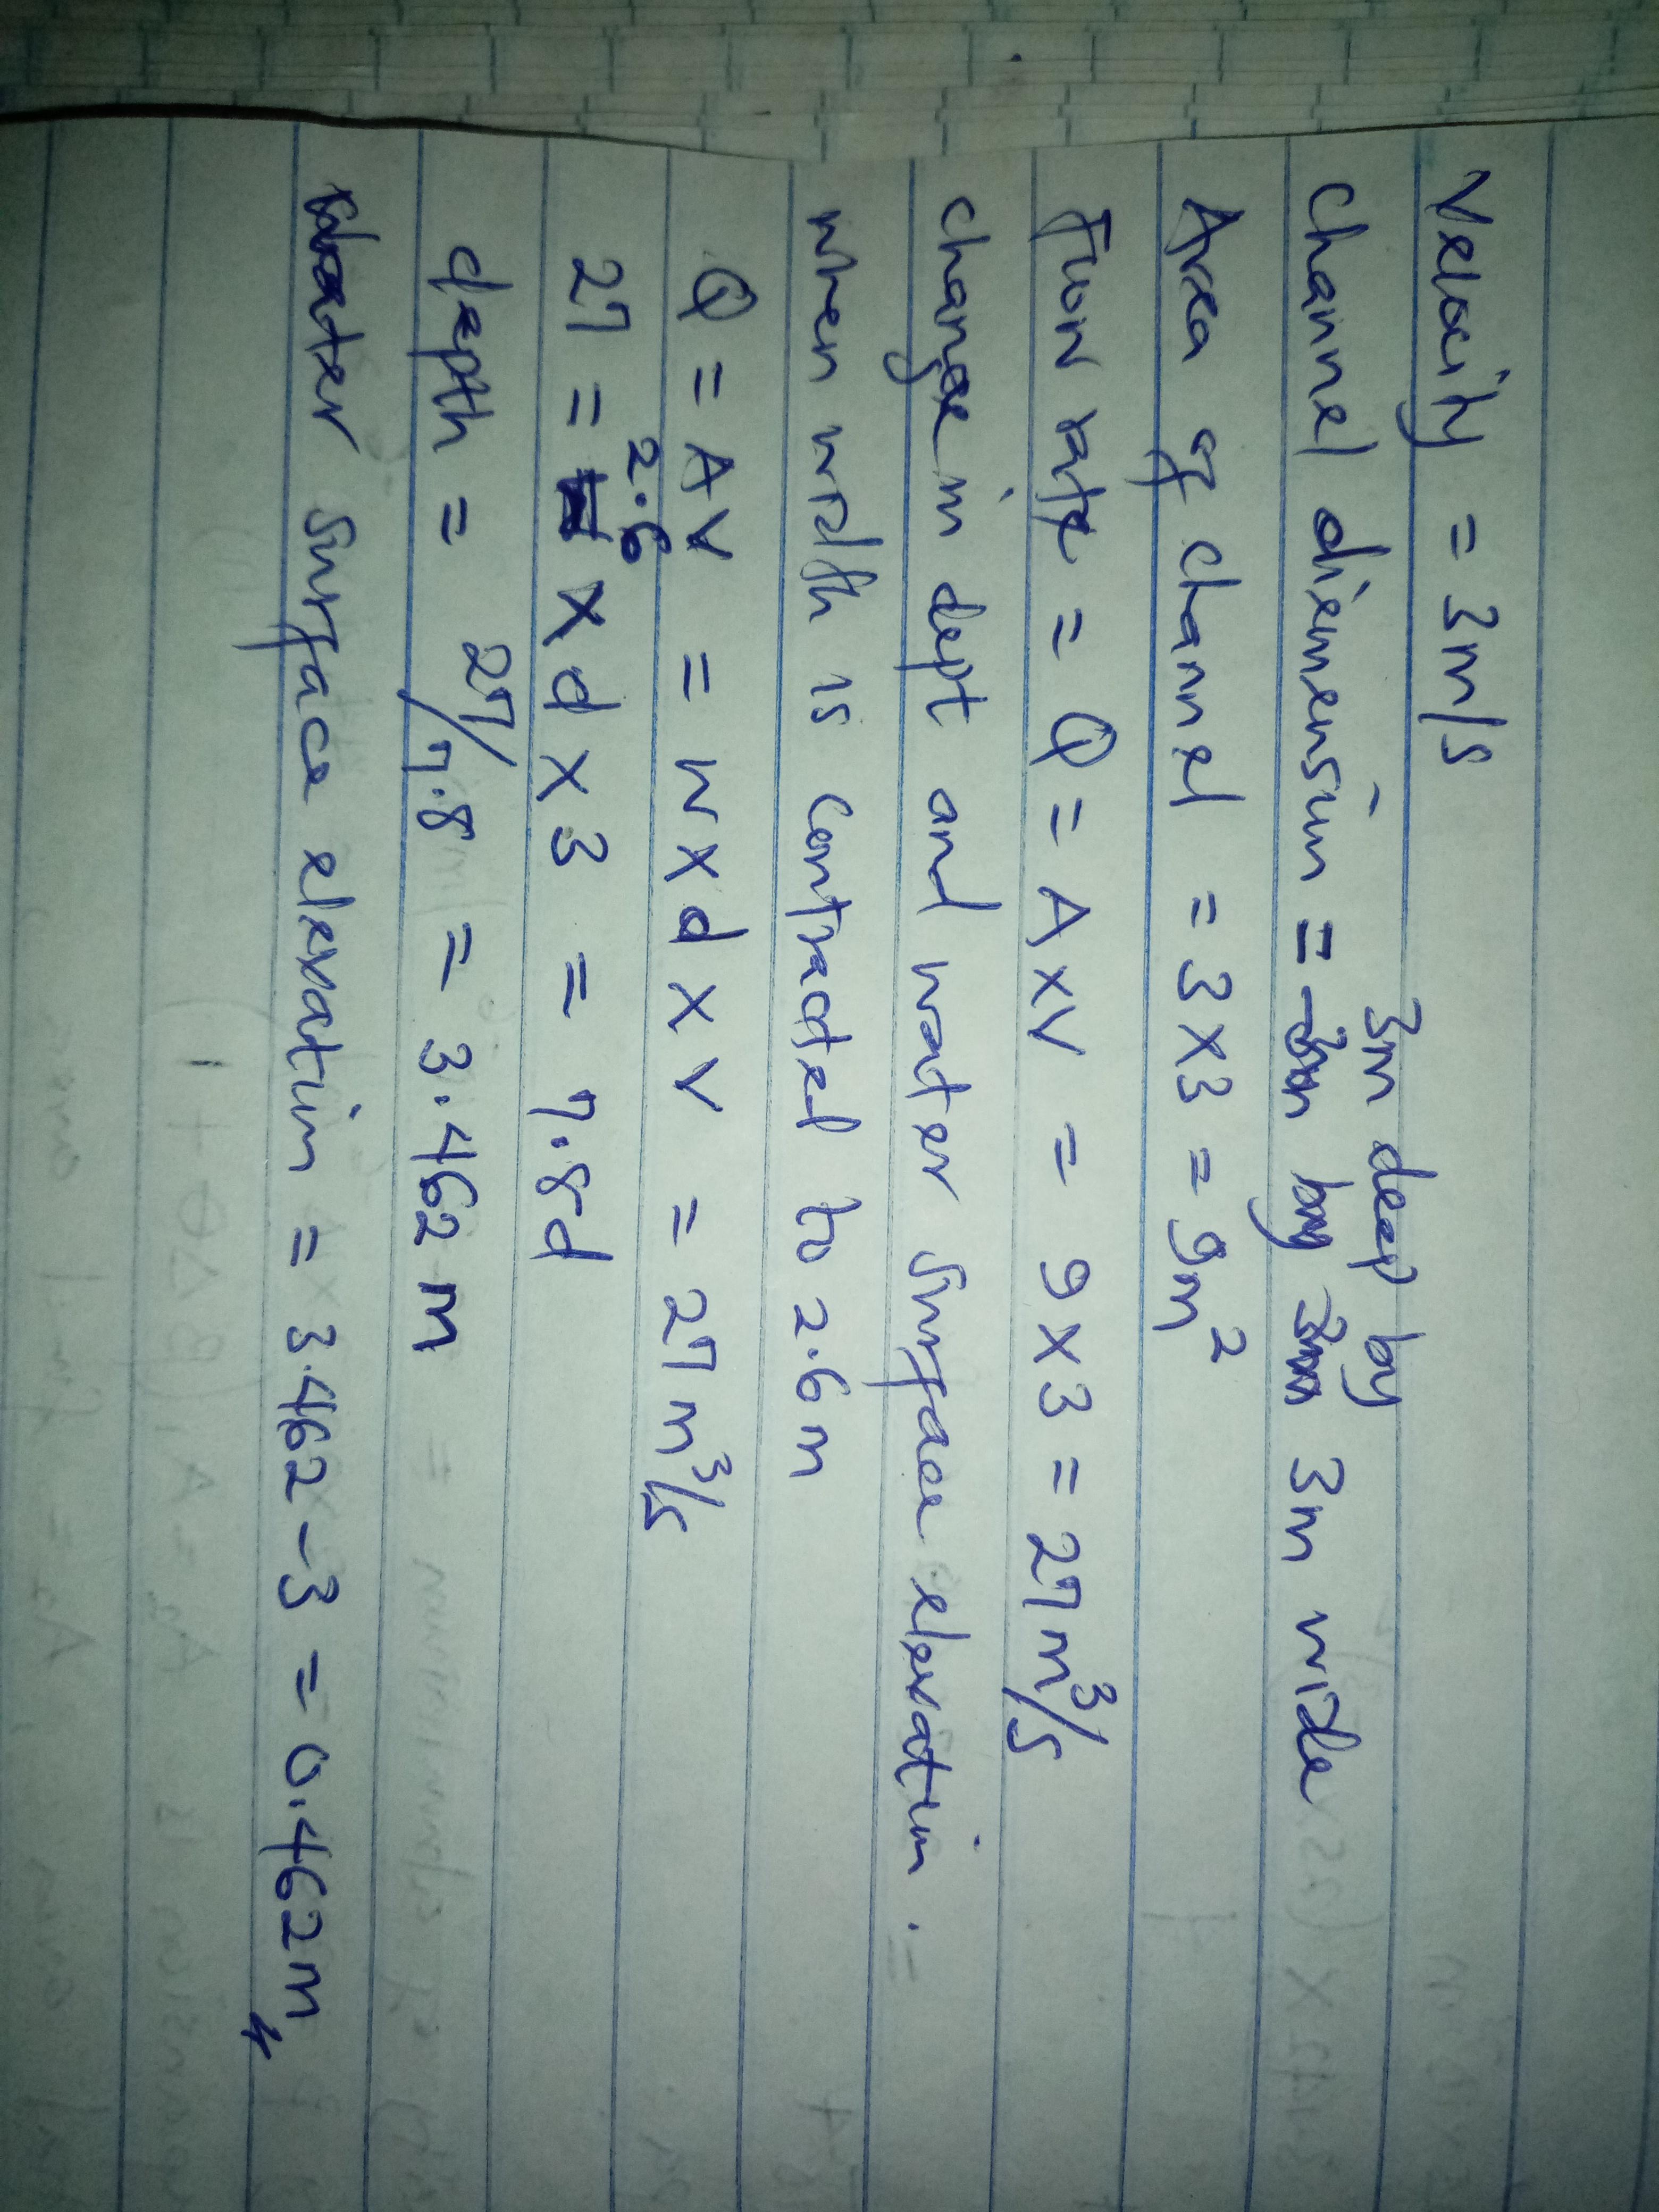 Velocity = 3m/s
3m deep by
Channel diemension = 3m wide
Area of channel = 3x3 = 9m²
Flow rate = Q = AxV = 9x3 = 27m³/s
Change in dept and water surface elevation.
when width is contracted to 2.6m
Q = AV = wxdxV = 27m³/s
27 = 2.6 x d x 3 = 7.8d
depth = 27/7.8 = 3.462m
Water surface elevation = 3.462-3 = 0.462m